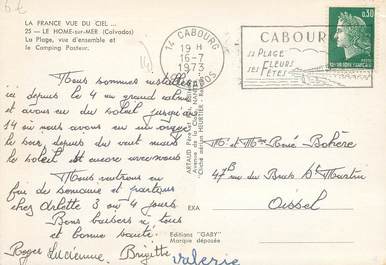 LA FRANCE VUE DU CIEL ...
25 — LE HOME-sur-MER (Calvados)
La Plage, vue d'ensemble et
le Camping Pasteur.
Nous sommes installés
ici depuis le 4 au grand calme
et avons eu du soleil jusqu'au
14 où nous avons eu un orage
le soir, depuis du vent mais
le soleil est encore revenu
Nous rentrons en
fin de semaine et partons
chez Arlette 3 ou 4 jours
Bons baisers à tous
et bonne santé.
Roger Lucienne, Brigitte
valerie
14 CABOURG
19 H
16-7
1973
CABOURG
SA PLAGE
SES FLEURS
SES FÊTES
0,30
EXA
Editions "GABY"
Marque déposée
Mr et Mme René Bohère
47B rue du Bras St Martin
Oissel